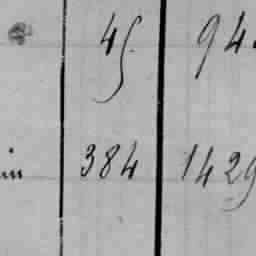 45 94
in 384 1429